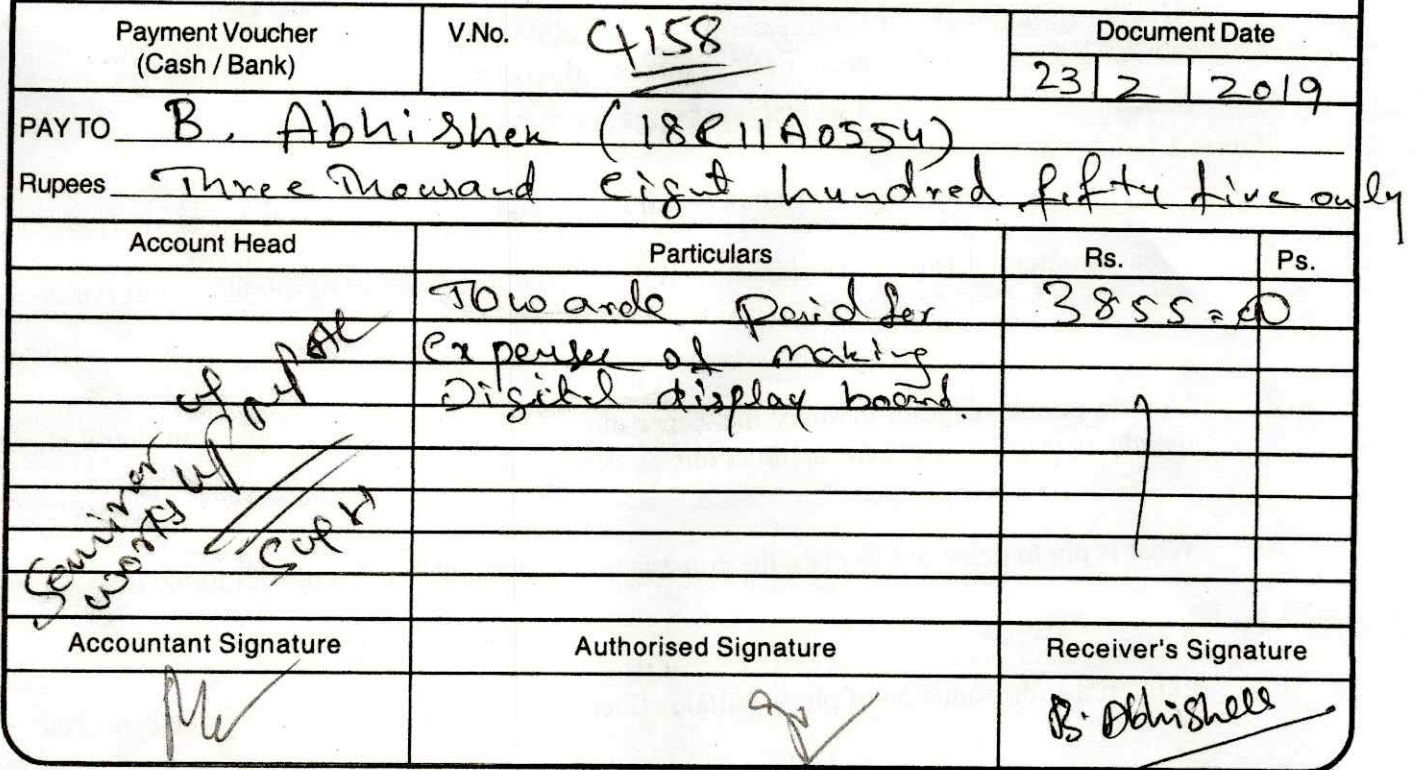 Payment Voucher
(Cash / Bank)
V.No. 4158
Document Date
23 2 2019
PAY TO B. Abhishek (18R11A0554)
Rupees Three Thousand eight hundred fifty five only
Account Head Particulars Rs. Ps.
Towards paid for 3855=00
expenses of making
Digital display board.
Seminar
works
Accountant Signature Authorised Signature Receiver's Signature
B. Abhishek